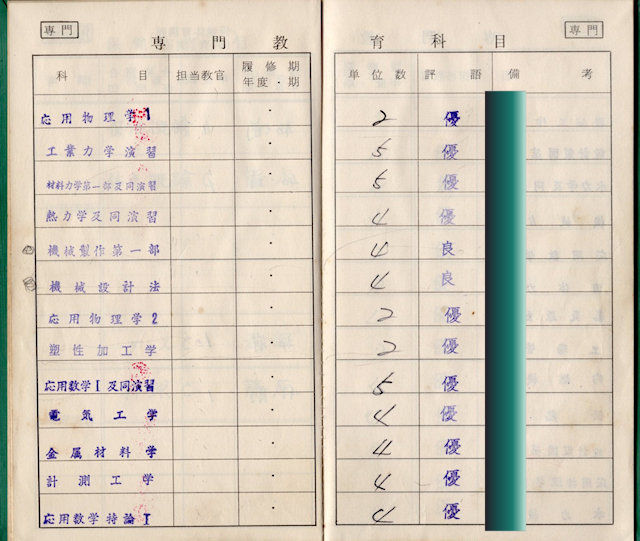 専門
専門
専門教育科目
科目 担当教官 履修期 年度・期 単位数 評語 備考
応用物理学1 2 優
工業力学演習 5 優
材料力学第一部及同演習 5 優
熱力学及同演習 4 優
機械製作第一部 4 良
機械設計法 4 良
応用物理学2 2 優
塑性加工学 2 優
応用数学I及同演習 5 優
電気工学 4 優
金属材料学 4 優
計測工学 4 優
応用数学特論I 4 優